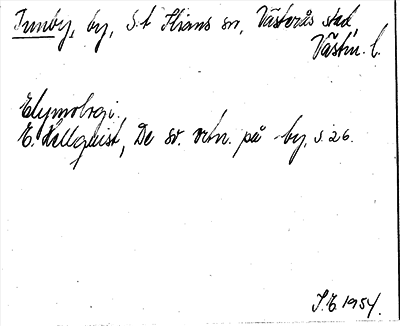 Tunby, by, S:t Ilians sn, Västerås stad
Västm. l.
Etymologi.
E. Hellquist, De sv. ortn. på -by, s. 26.
I.E. 1954.